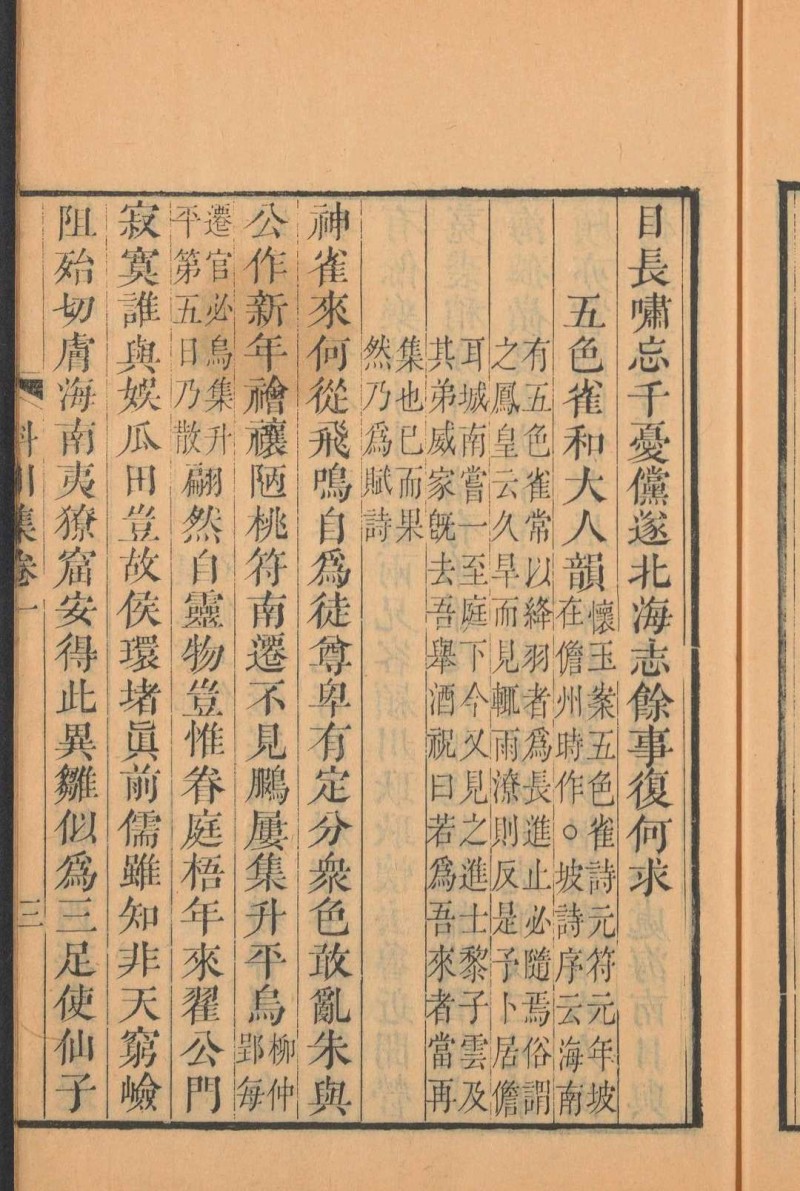 目長嘯忘千憂儻遂北海志餘事復何求
五色雀和大人韻
懷玉案五色雀詩元符元年坡
在儋州時作。坡詩序云海南
有五色雀常以絳羽者爲長進止必隨焉俗謂
之鳳皇云久旱而見輒雨潦則反是予卜居儋
耳城南嘗一至庭下今又見之進士黎子雲及
其弟威家旣去吾舉酒祝曰若爲吾來者當再
集也已而果
然乃爲賦詩
神雀來何從飛鳴自爲徒尊卑有定分衆色敢亂朱與
公作新年禬禳陋桃符南遷不見鵬屢集升平烏
柳仲
郢每
遷官必烏集升
平第五日乃散
翩然自靈物豈惟眷庭梧年來翟公門
寂寞誰與娛瓜田豈故侯環堵眞前儒雖知非天窮嶮
阻殆切膚海南夷獠窟安得此異雛似爲三足使仙子
斜川集卷一
三